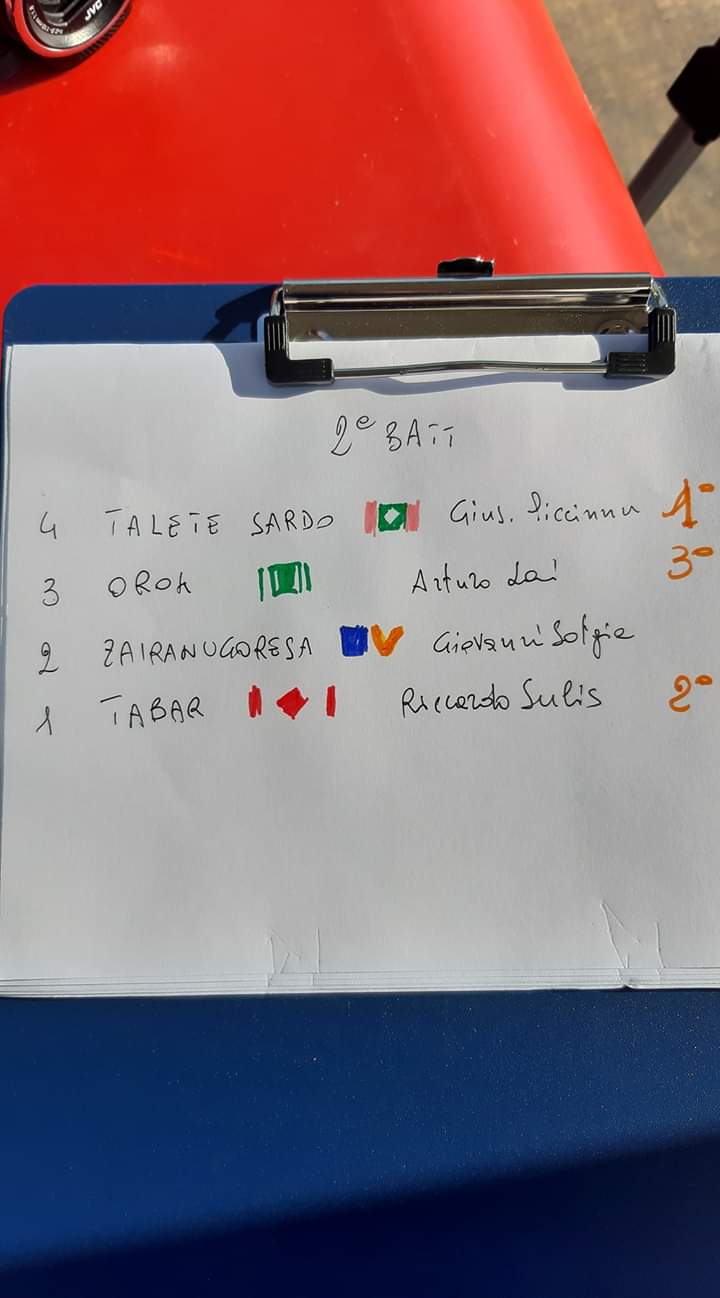 JVC
2e BATT
4 TALETE SARDO Gius. Piccinnu 1°
3 OROK Arturo Lai 3°
2 ZAIRANUGORESA Giovanni Sotgia
1 TABAR Riccardo Sulis 2°